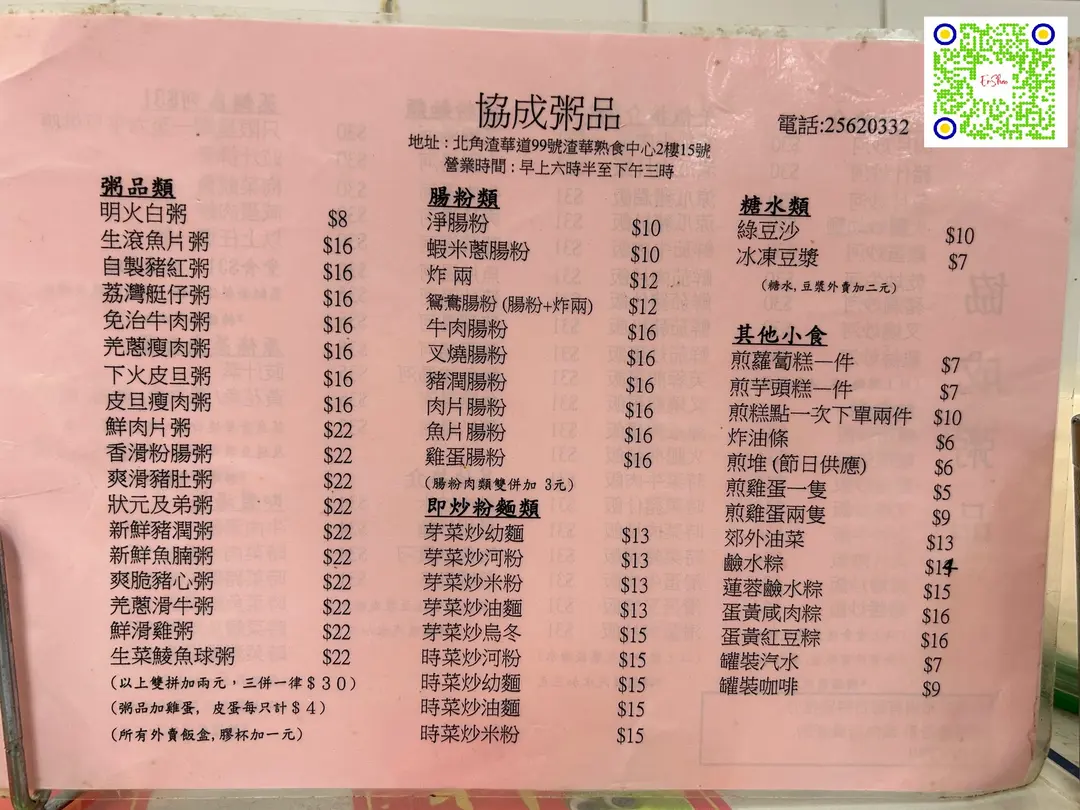 協成粥品
電話:25620332
地址：北角渣華道99號渣華熟食中心2樓15號
營業時間：早上六時半至下午三時
粥品類
明火白粥 $8
生滾魚片粥 $16
自製豬紅粥 $16
荔灣艇仔粥 $16
免治牛肉粥 $16
羌蔥瘦肉粥 $16
下火皮旦粥 $16
皮旦瘦肉粥 $16
鮮肉片粥 $22
香滑粉腸粥 $22
爽滑豬肚粥 $22
狀元及弟粥 $22
新鮮豬潤粥 $22
新鮮魚腩粥 $22
爽脆豬心粥 $22
羌蔥滑牛粥 $22
鮮滑雞粥 $22
生菜鯪魚球粥 $22
(以上雙拼加兩元，三併一律＄30)
(粥品加雞蛋, 皮蛋每只計＄4)
(所有外賣飯盒,膠杯加一元)
腸粉類
淨腸粉 $10
蝦米蔥腸粉 $10
炸 兩 $12
鴛鴦腸粉 (腸粉+炸兩) $12
牛肉腸粉 $16
叉燒腸粉 $16
豬潤腸粉 $16
肉片腸粉 $16
魚片腸粉 $16
雞蛋腸粉 $16
(腸粉肉類雙併加 3元)
即炒粉麵類
芽菜炒幼麵 $13
芽菜炒河粉 $13
芽菜炒米粉 $13
芽菜炒油麵 $13
芽菜炒烏冬 $15
時菜炒河粉 $15
時菜炒幼麵 $15
時菜炒油麵 $15
時菜炒米粉 $15
糖水類
綠豆沙 $10
冰凍豆漿 $7
(糖水,豆漿外賣加二元)
其他小食
煎蘿蔔糕一件 $7
煎芋頭糕一件 $7
煎糕點一次下單兩件 $10
炸油條 $6
煎堆 (節日供應) $6
煎雞蛋一隻 $5
煎雞蛋兩隻 $9
郊外油菜 $13
鹼水粽 $14
蓮蓉鹼水粽 $15
蛋黃咸肉粽 $16
蛋黃紅豆粽 $16
罐裝汽水 $7
罐裝咖啡 $9